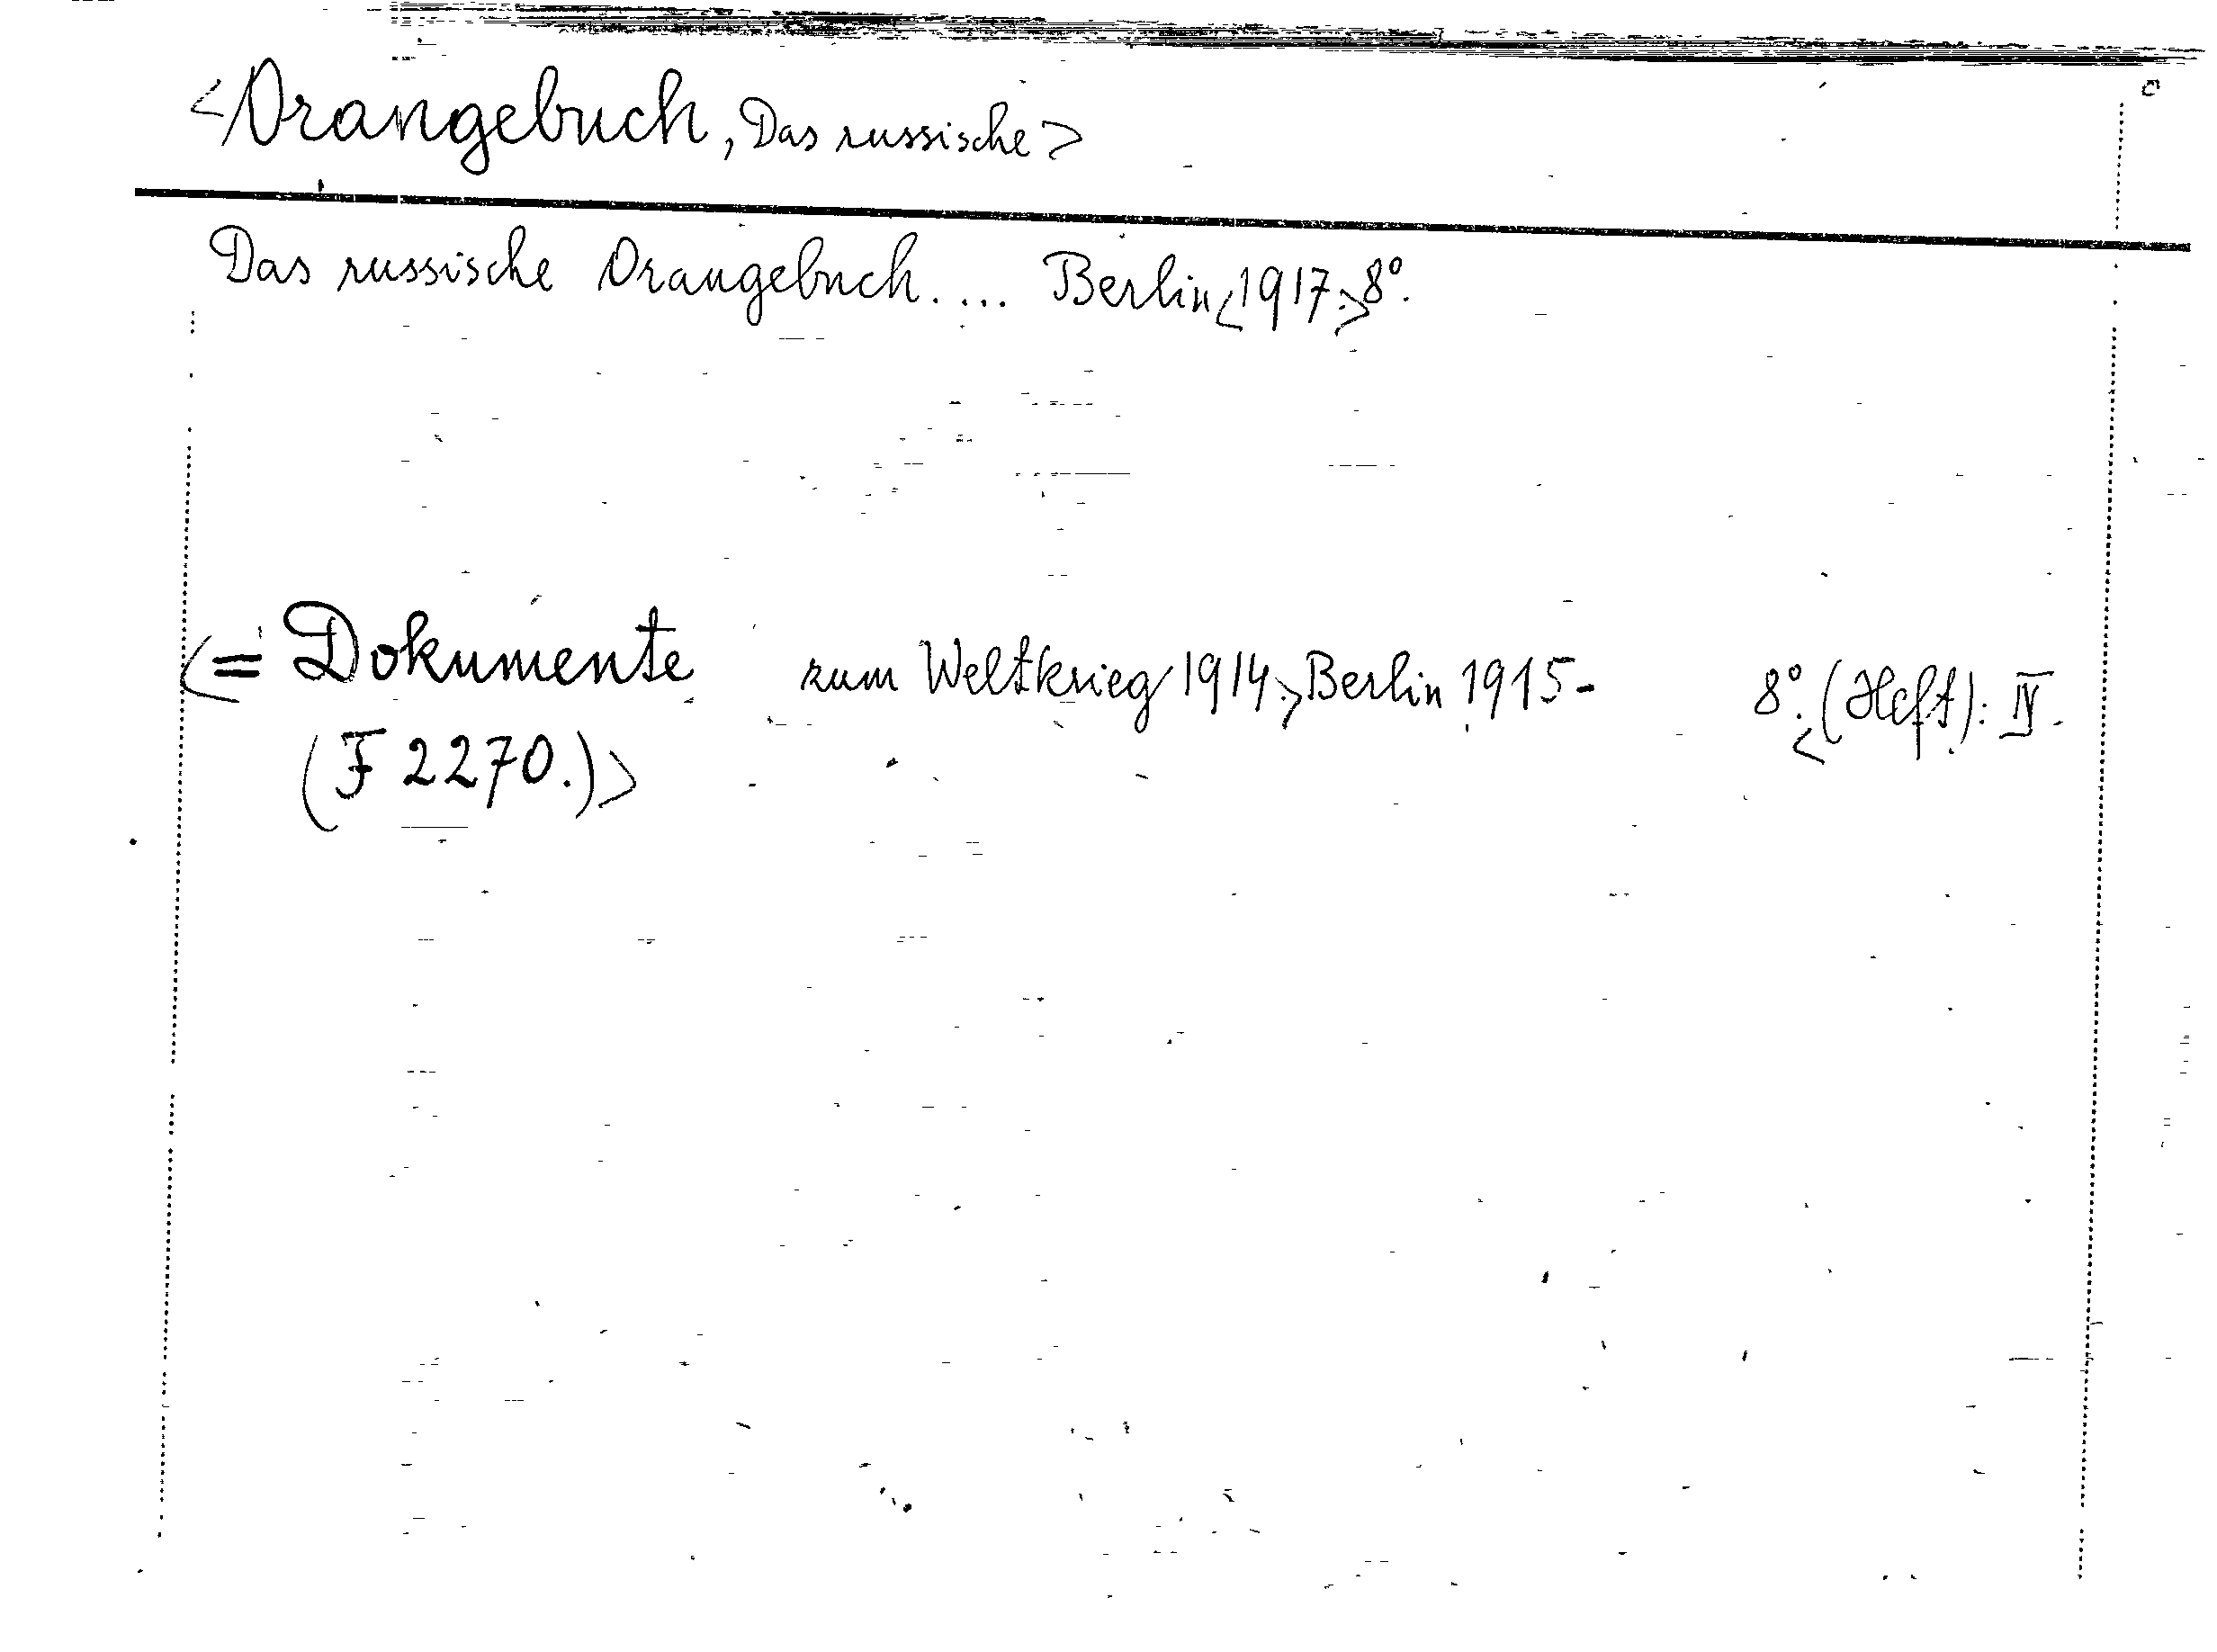 <Orangebuch, Das russische>
Das russische Orangebuch.... Berlin<1917.>8°.
<= Dokumente zum Weltkrieg 1914.>Berlin 1915- 8°.<(Heft): IV.
(F 2270.)>